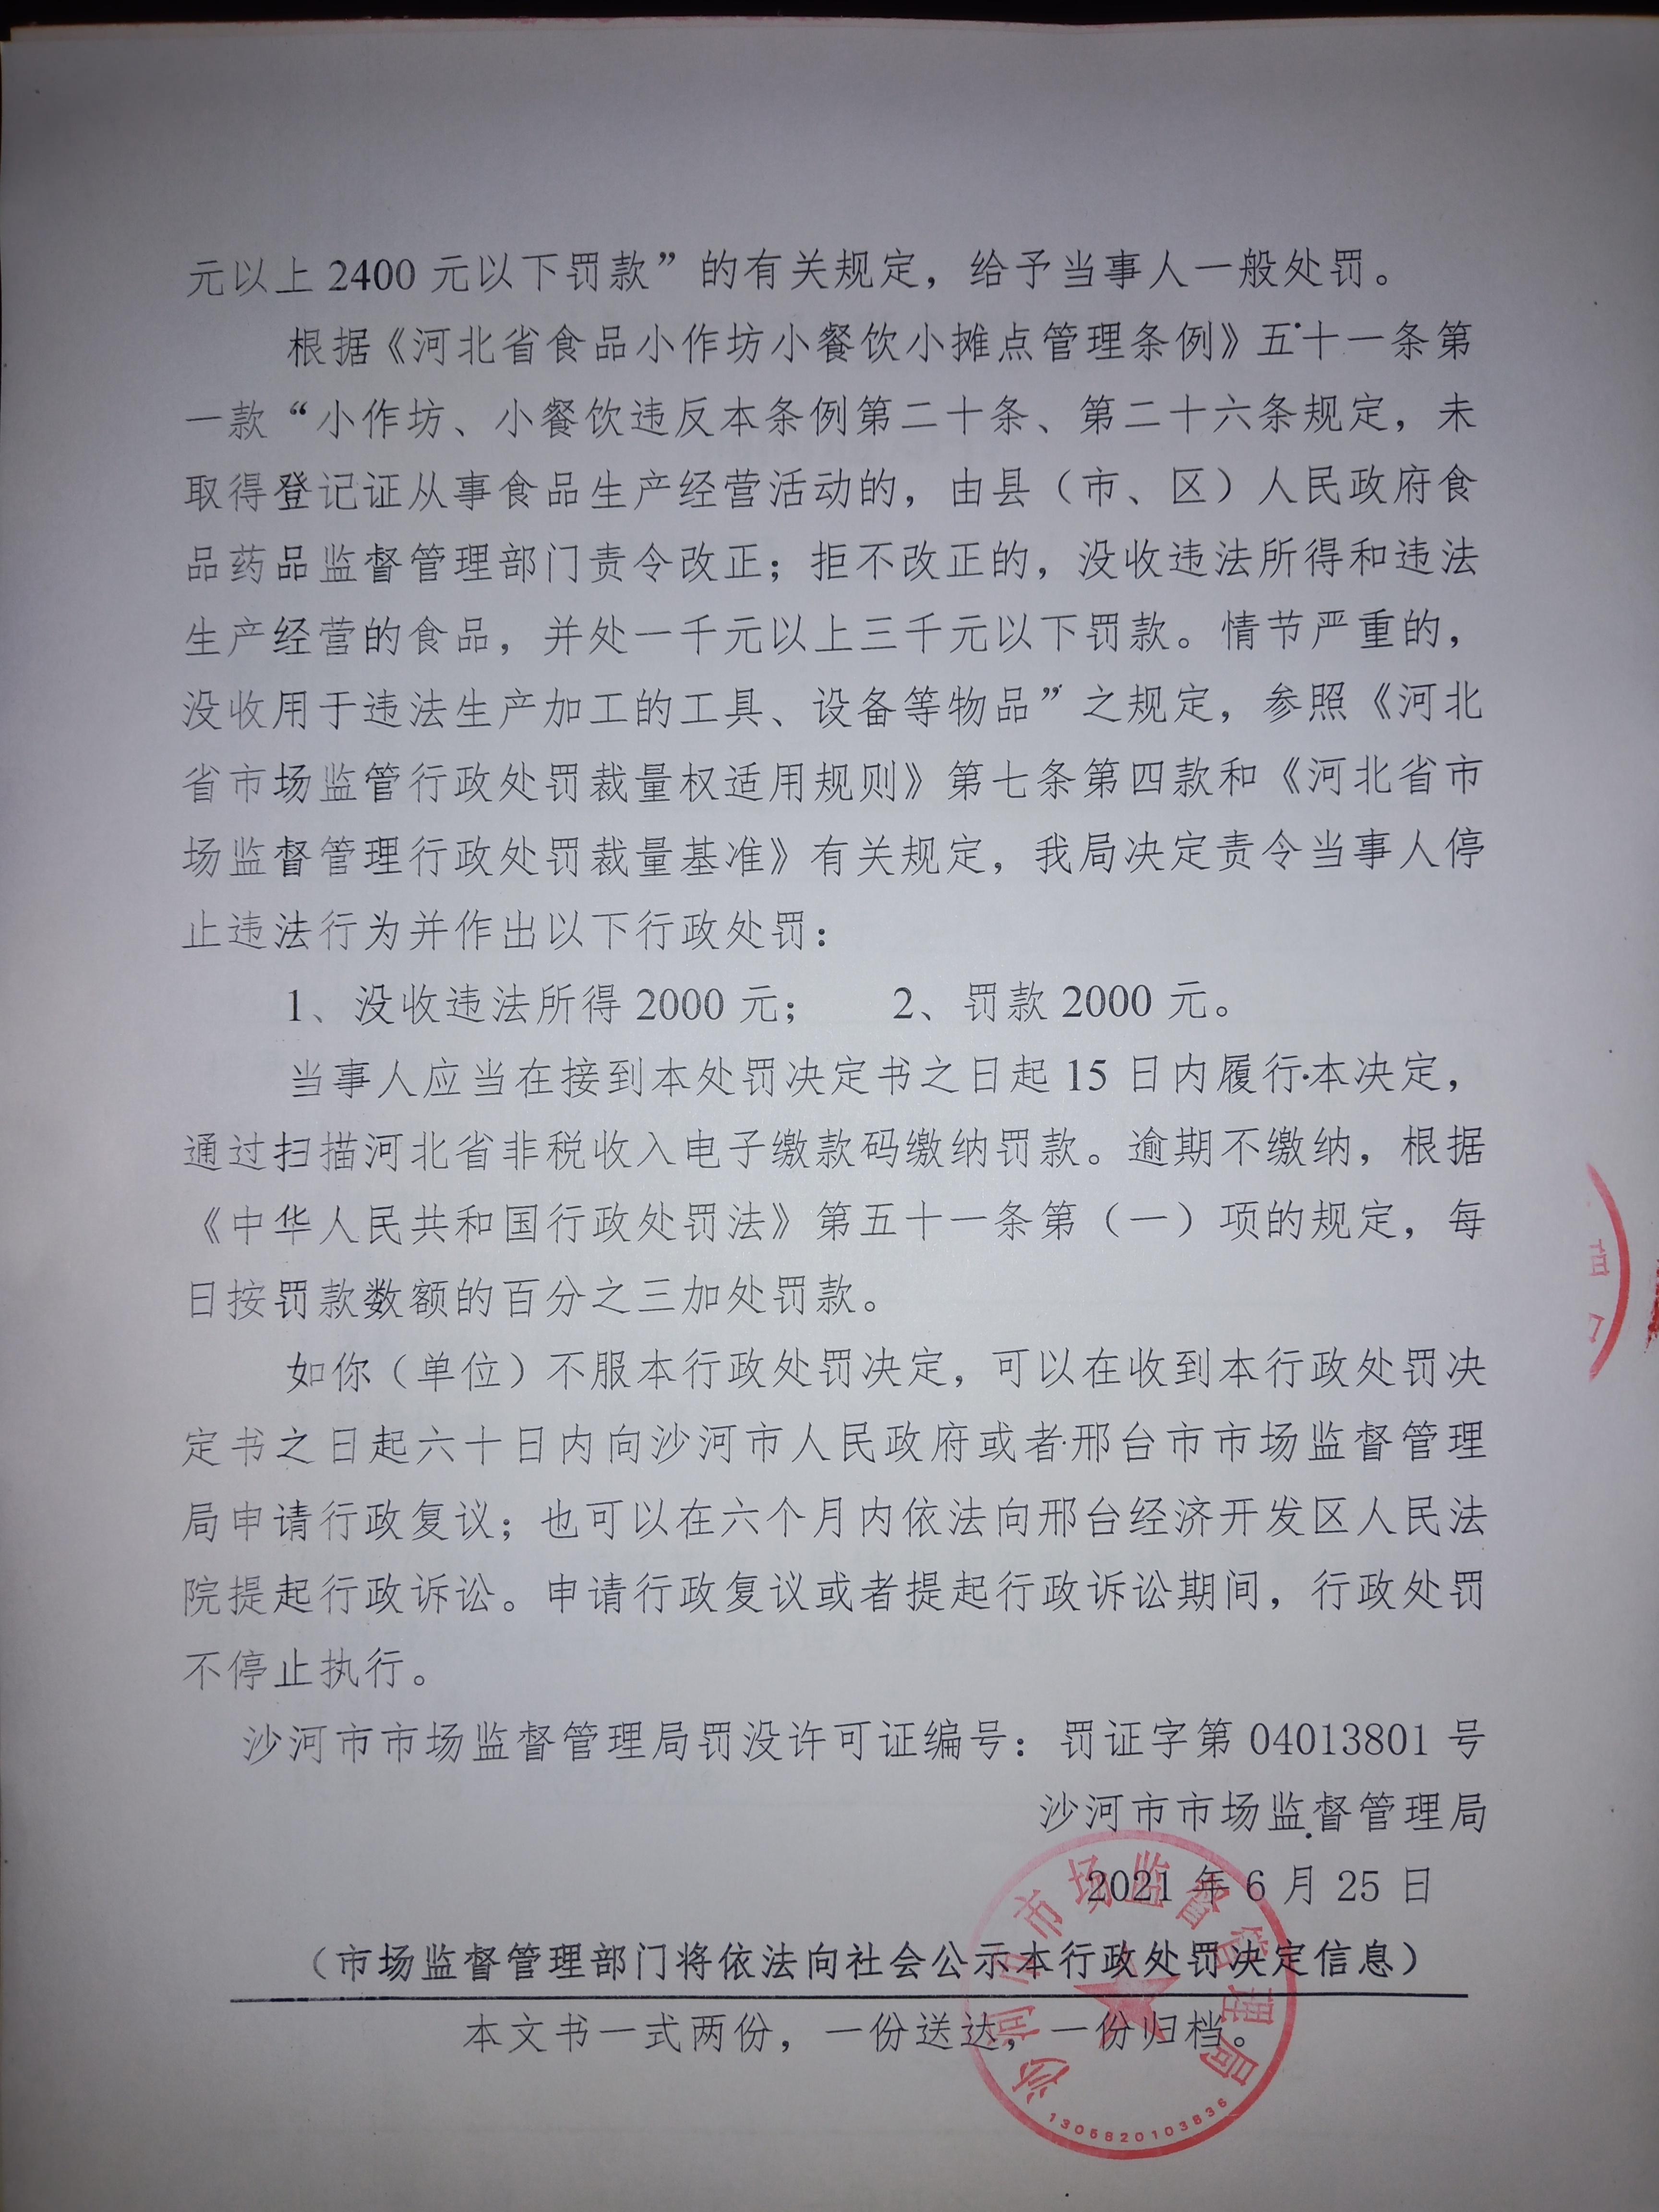 元以上 2400 元以下罚款”的有关规定，给予当事人一般处罚。
根据《河北省食品小作坊小餐饮小摊点管理条例》五十一条第
一款“小作坊、小餐饮违反本条例第二十条、第二十六条规定，未
取得登记证从事食品生产经营活动的，由县（市、区）人民政府食
品药品监督管理部门责令改正；拒不改正的，没收违法所得和违法
生产经营的食品，并处一千元以上三千元以下罚款。情节严重的，
没收用于违法生产加工的工具、设备等物品”之规定，参照《河北
省市场监管行政处罚裁量权适用规则》第七条第四款和《河北省市
场监督管理行政处罚裁量基准》有关规定，我局决定责令当事人停
止违法行为并作出以下行政处罚：
1、没收违法所得 2000 元； 2、罚款 2000 元。
当事人应当在接到本处罚决定书之日起 15 日内履行本决定，
通过扫描河北省非税收入电子缴款码缴纳罚款。逾期不缴纳，根据
《中华人民共和国行政处罚法》第五十一条第（一）项的规定，每
日按罚款数额的百分之三加处罚款。
如你（单位）不服本行政处罚决定，可以在收到本行政处罚决
定书之日起六十日内向沙河市人民政府或者邢台市市场监督管理
局申请行政复议；也可以在六个月内依法向邢台经济开发区人民法
院提起行政诉讼。申请行政复议或者提起行政诉讼期间，行政处罚
不停止执行。
沙河市市场监督管理局罚没许可证编号：罚证字第 04013801 号
沙河市市场监督管理局
2021 年 6 月 25 日
（市场监督管理部门将依法向社会公示本行政处罚决定信息）
本文书一式两份，一份送达，一份归档。
沙河市市场监督管理局
1305820103836